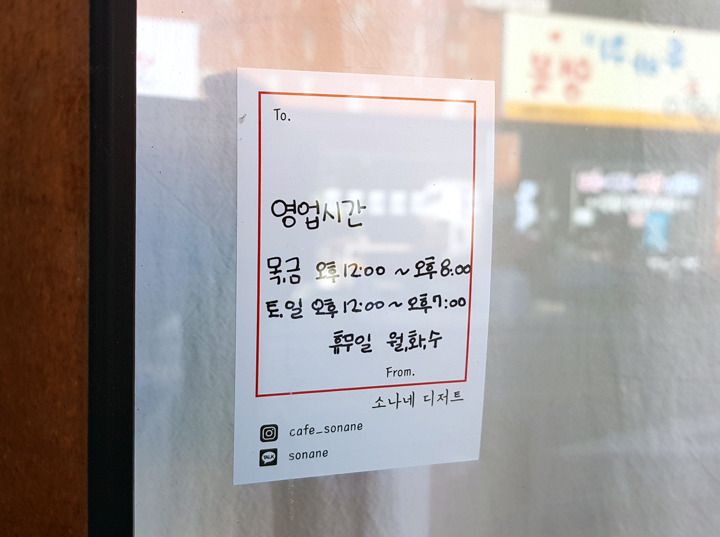 To.
영업시간
목,금 오후 12:00 ~ 오후 8:00
토,일 오후 12:00 ~ 오후 7:00
휴무일 월,화,수
From.
소나네 디저트
cafe_sonane
TALK
sonane